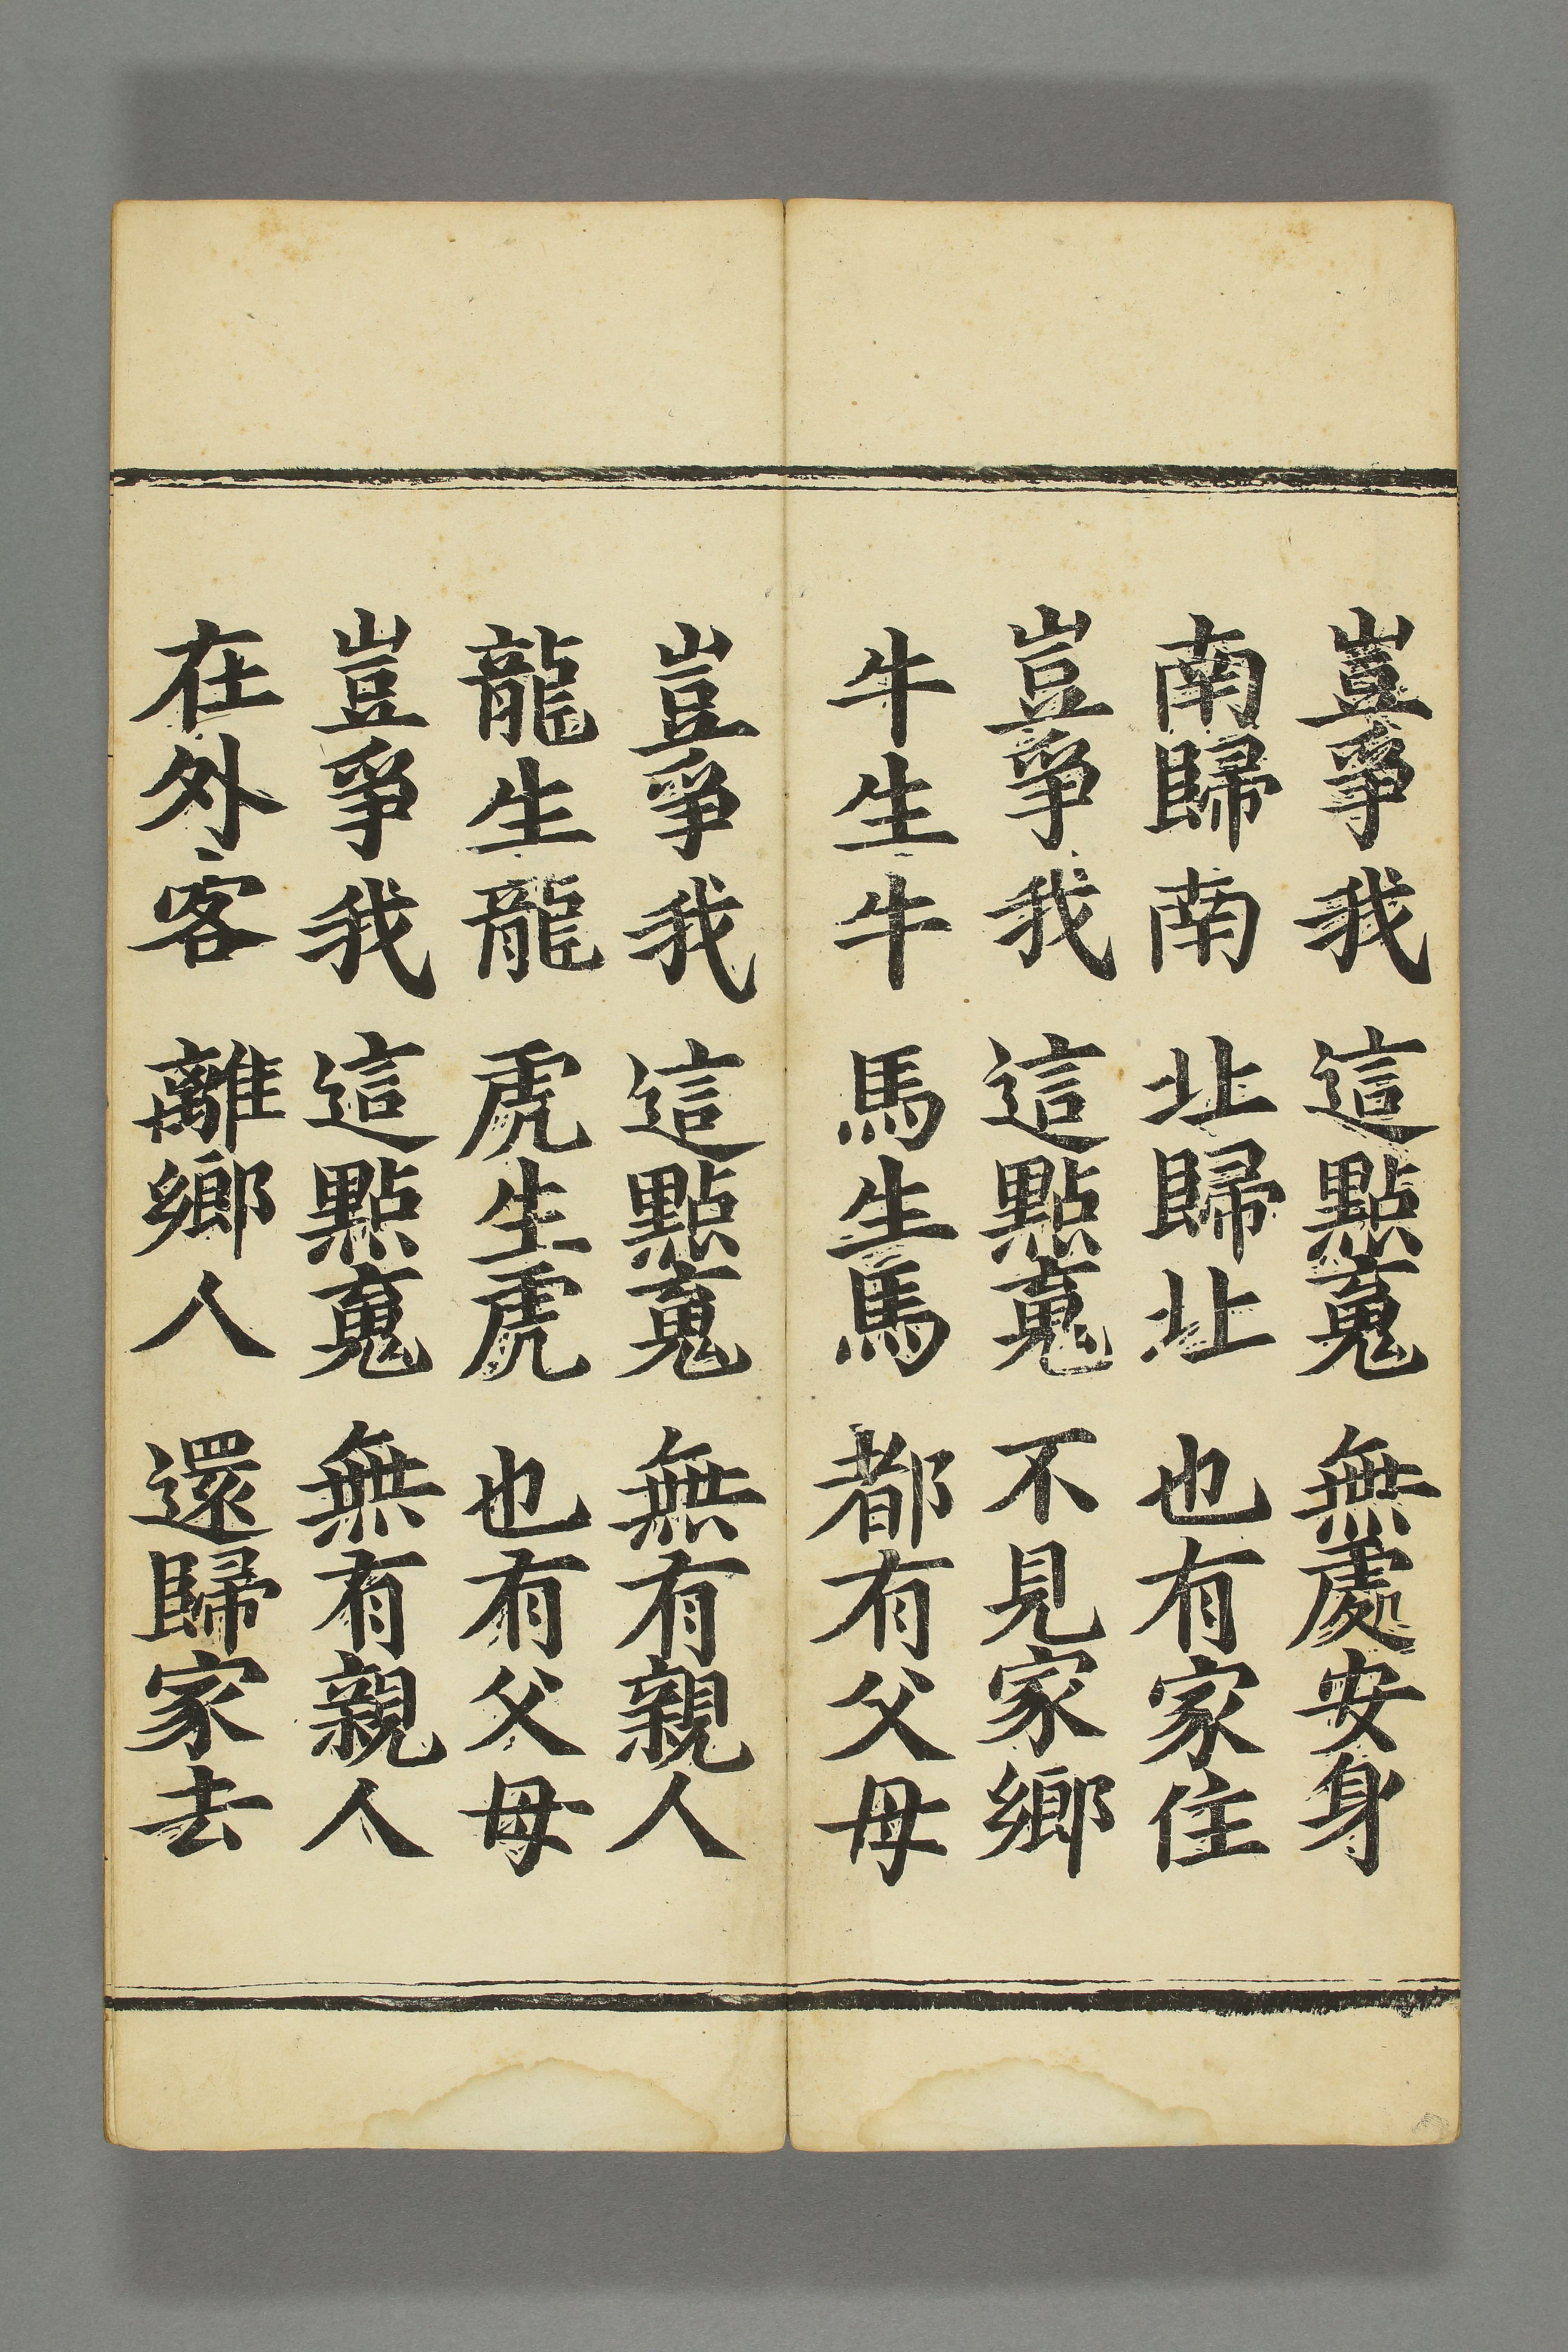 豈爭我　這點䰟　無處安身
南歸南　北歸北　也有家住
豈爭我　這點䰟　不見家鄉
牛生牛　馬生馬　都有父母
豈爭我　這點䰟　無有親人
龍生龍　虎生虎　也有父母
豈爭我　這點䰟　無有親人
在外客　離鄉人　還歸家去